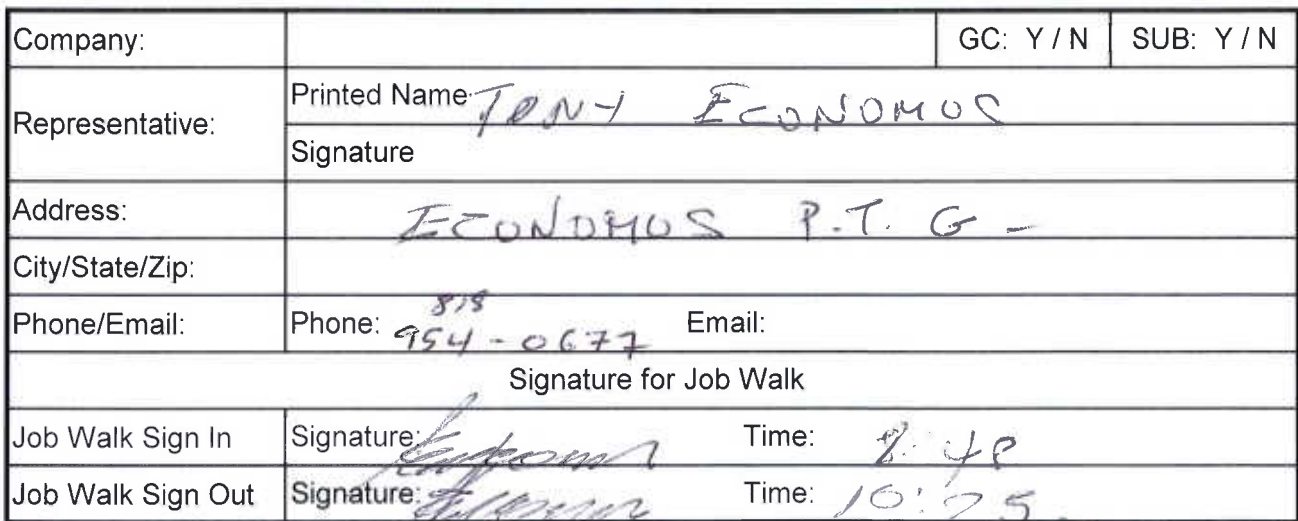 Company: GC: Y / N SUB: Y / N
Representative: Printed Name TONY ECONOMOS
Signature
Address: ECONOMOS P.T. G -
City/State/Zip:
Phone/Email: Phone: 818 954-0677 Email:
Signature for Job Walk
Job Walk Sign In Signature: Time:
Job Walk Sign Out Signature: Time: 10:25